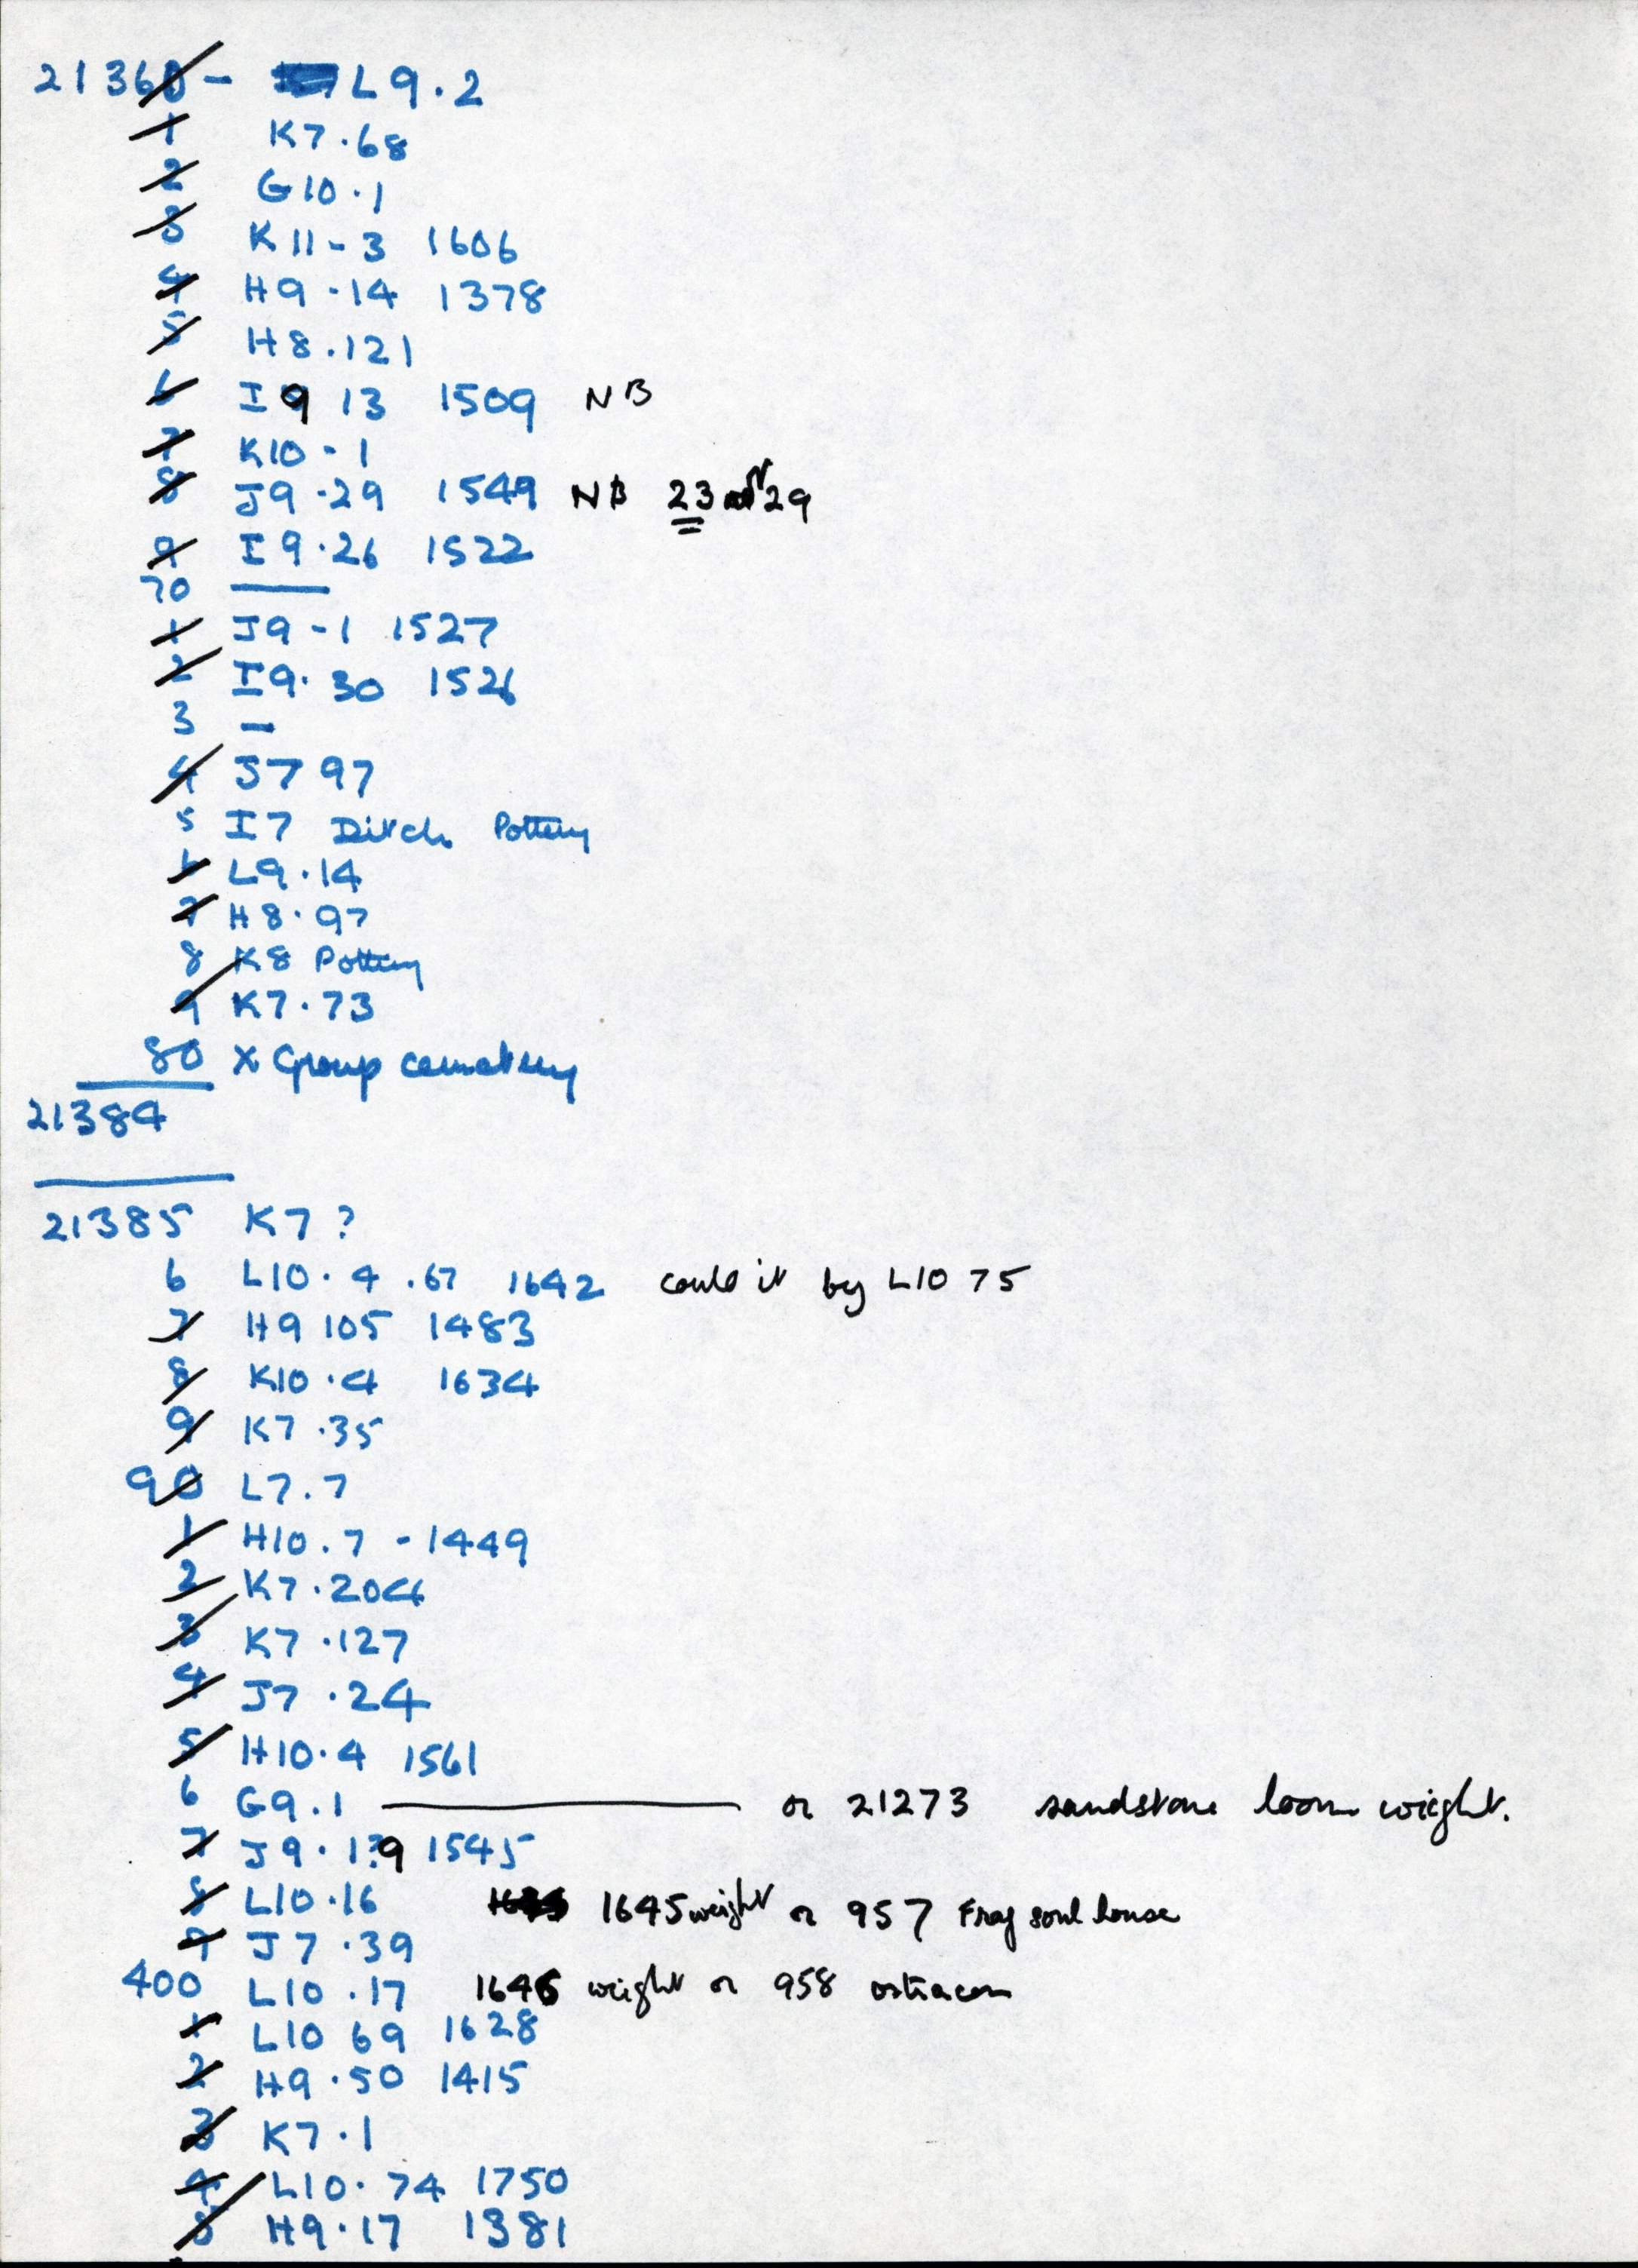 21360 - L9.2
1 K7.68
2 G10.1
3 K11-3 1606
4 H9.14 1378
5 H8.121
6 I9 13 1509 NB
7 K10-1
8 J9.29 1549 NB 23 not 29
9 I9.26 1522
70 —
1 J9-1 1527
2 I9.30 1526
3 —
4 J7 97
5 I7 Ditch Pottery
6 L9.14
7 H8.97
8 K8 Pottery
9 K7.73
80 X Group cemetery
21384
21385 K7?
6 L10.4.67 1642 could it by L10 75
7 H9 105 1483
8 K10.4 1634
9 K7.35
90 L7.7
1 H10.7 - 1449
2 K7.204
3 K7.127
4 J7.24
5 H10.4 1561
6 G9.1 — or 21273 sandstone loom weight.
7 J9. 1545
8 L10.16 1645 weight or 957 Frag soul house
9 J7.39
400 L10.17 1646 weight or 958 ostracon
1 L10 69 1628
2 H9.50 1415
3 K7.1
4 L10.74 1750
5 H9.17 1381